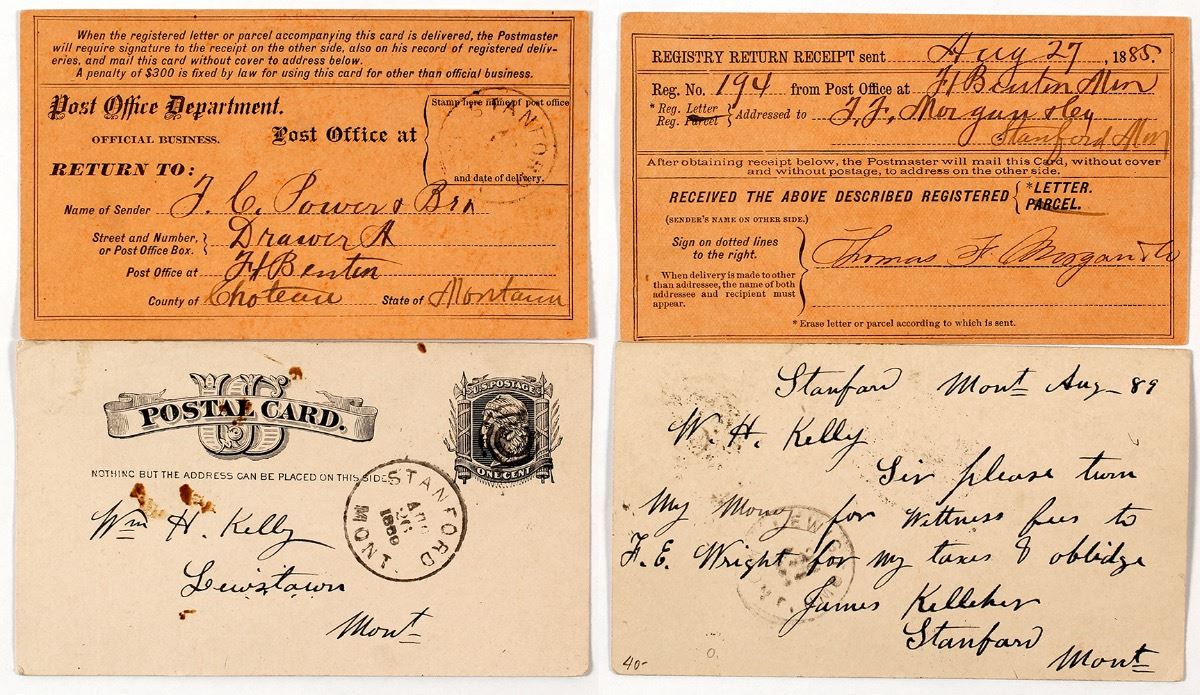 When the registered letter or parcel accompanying this card is delivered, the Postmaster
will require signature to the receipt on the other side, also on his record of registered deliv-
eries, and mail this card without cover to address below.
A penalty of $300 is fixed by law for using this card for other than official business.
Post Office Department.
OFFICIAL BUSINESS.
Post Office at
Stamp here name of post office
STANFORD
and date of delivery.
RETURN TO:
Name of Sender T. C. Power & Bro
Street and Number, or Post Office Box. } Drawer A
Post Office at Ft Benton
County of Choteau State of Montana
REGISTRY RETURN RECEIPT sent Aug 27, 1885.
Reg. No. 194 from Post Office at Ft Benton Mon
* Reg. Letter
Reg. Parcel } Addressed to T. F. Morgan & Co
Stanford Mon
After obtaining receipt below, the Postmaster will mail this Card, without cover
and without postage, to address on the other side.
RECEIVED THE ABOVE DESCRIBED REGISTERED { *LETTER.
PARCEL.
(SENDER'S NAME ON OTHER SIDE.)
Sign on dotted lines
to the right.
Thomas F. Morgan
When delivery is made to other
than addressee, the name of both
addressee and recipient must
appear.
* Erase letter or parcel according to which is sent.
US
POSTAL CARD.
U.S. POSTAGE
ONE CENT
NOTHING BUT THE ADDRESS CAN BE PLACED ON THIS SIDE
STANFORD
AUG
1889
MONT.
Wm H. Kelly
Lewistown
Mont
Stanford Mont Aug 89
W. H. Kelly
Sir please turn
My Mony for Wittness fees to
F. E. Wright for my taxes & oblidge
James Kelleher
Stanford
Mont
40-